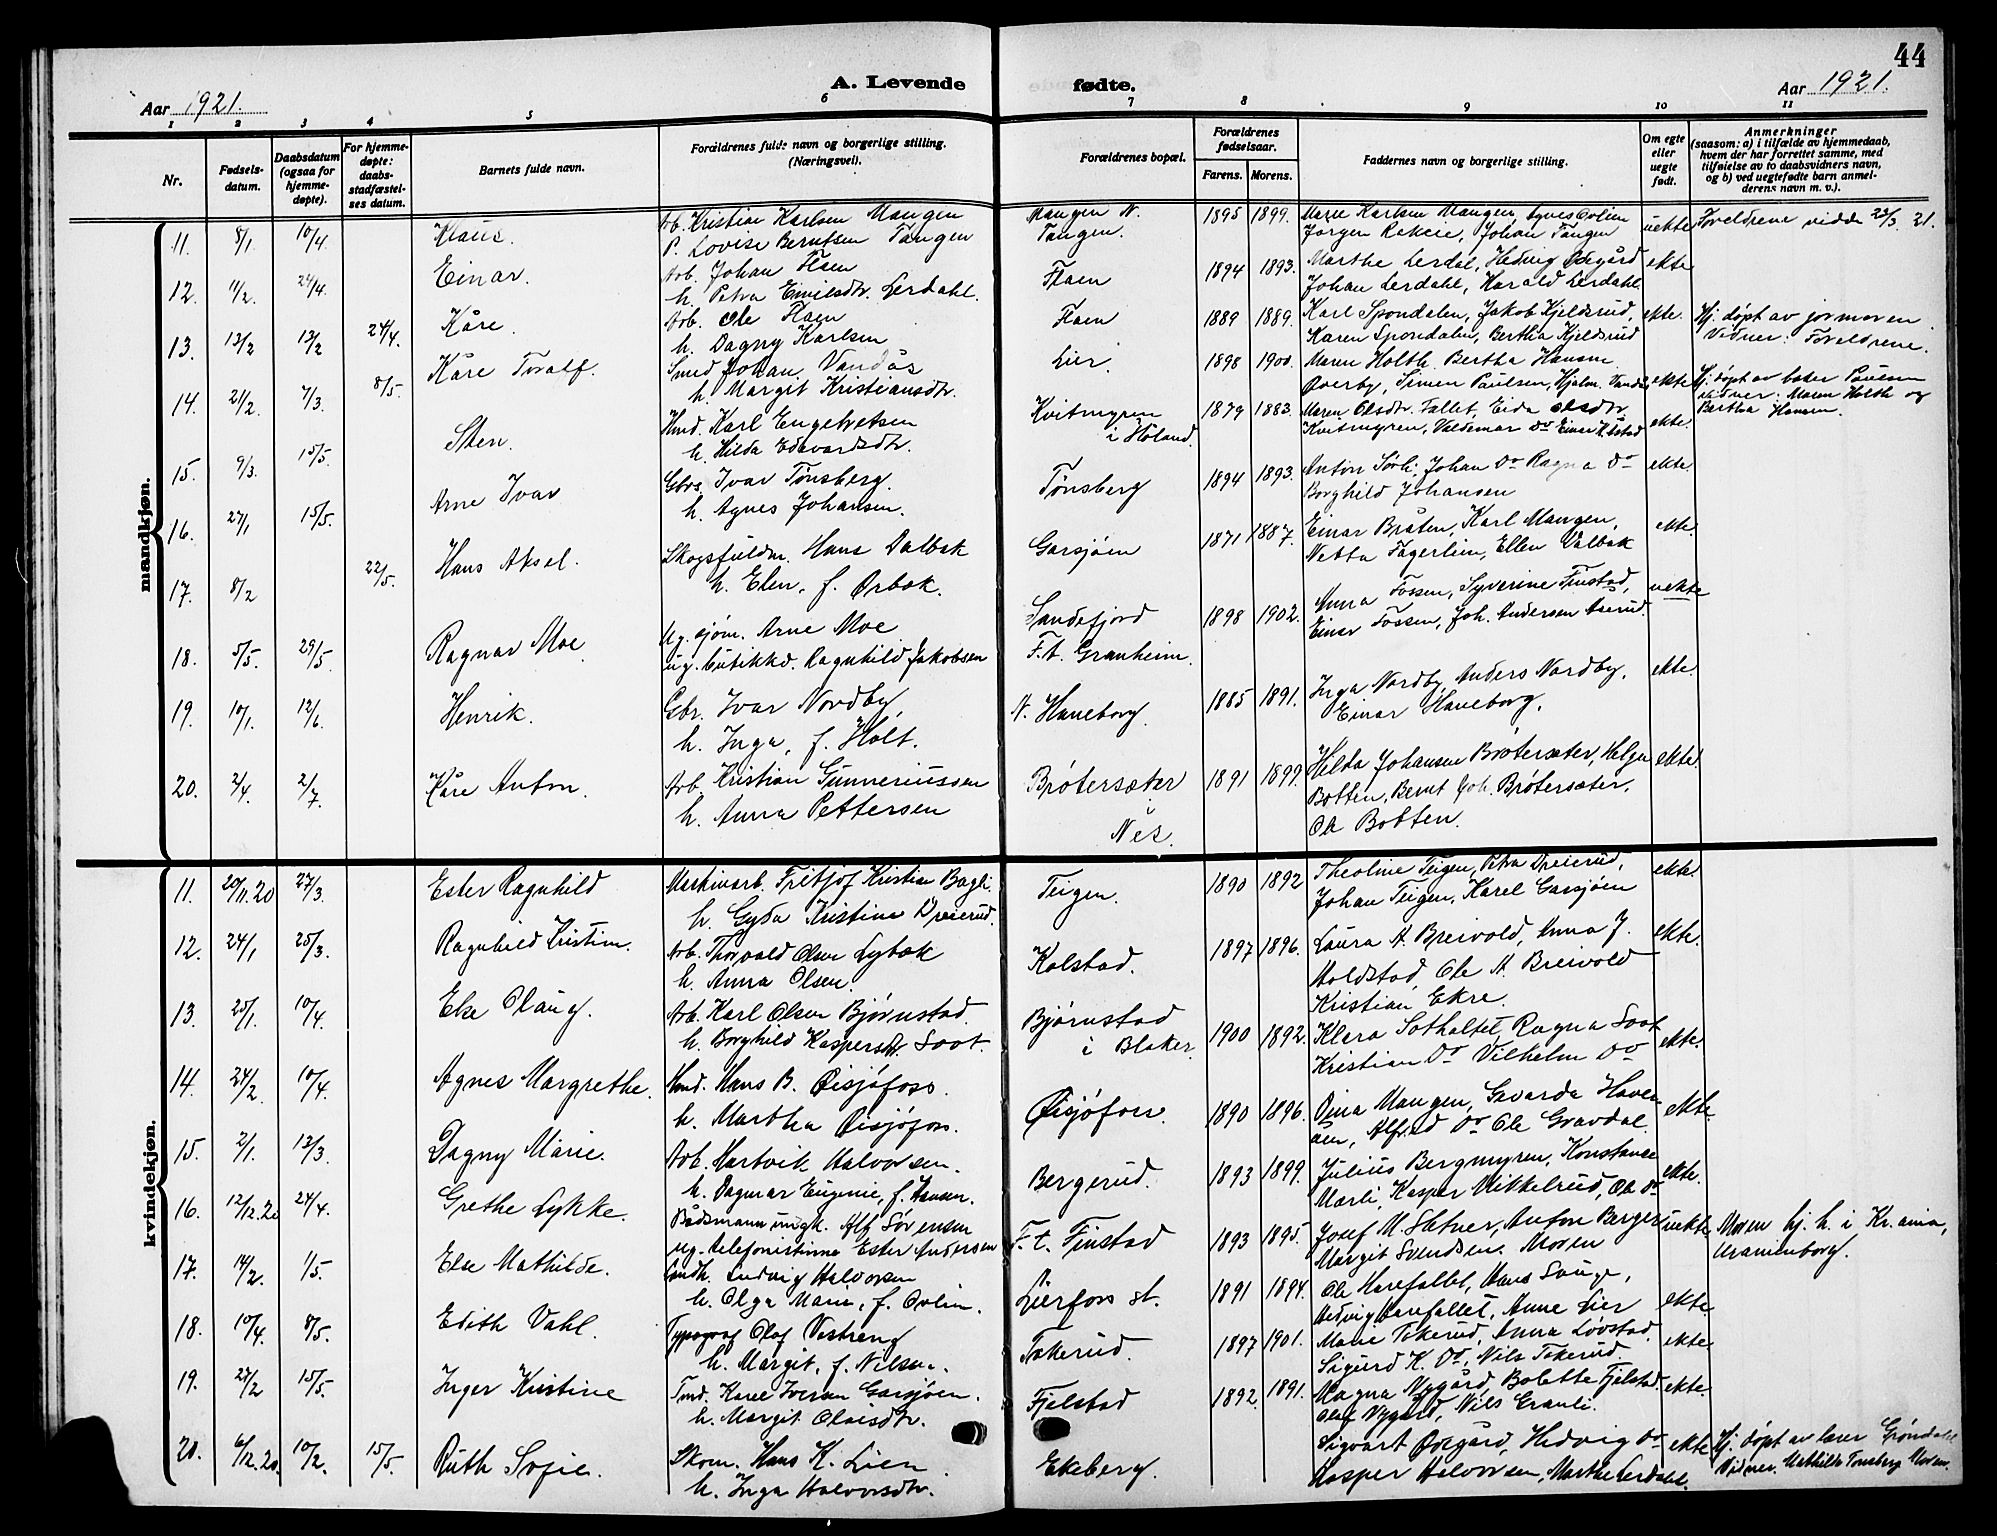 44
A. Levende fødte.
Aar 1921.
Aar 1921.
1 2 3 4 5 6 7 8 9 10 11
Nr.
Fødsels-datum.
Daabsdatum (ogsaa for hjemme-døpte).
For hjemme-døpte: daabs-stadfæstel-ses datum.
Barnets fulde navn.
Forældrenes fulde navn og borgerlige stilling. (Næringsvei).
Forældrenes bopæl.
Forældrenes fødselsaar.
Farens. Morens.
Faddernes navn og borgerlige stilling.
Om egte eller uegte født.
Anmerkninger
(saasom: a) i tilfælde av hjemmedaab, hvem der har forrettet samme, med tilføielse av to daabsvidners navn, og b) ved uegtefødte barn anmel-derens navn m. v.).
mandkjøn.
11. 8/1 10/4 Klaus. Arb. Kristian Karlsen Mangen Mangen N. 1895 1899. Marie Karlsen Mangen, Agnes Oolien uekte Foreldrene viddd 23/3 21.
P. Lovise Berntsen Tangen Tangen. Jørgen Rakeie, Johan Tangen
12. 11/2. 24/4. Einar. Arb. Johan Flaen Flaen 1894 1893. Marthe Lerdal, Hedvig Ødegård ekte
h. Petra Emilsdtr. Lerdahl. Johan Lerdahl, Harald Lerdahl.
13. 13/2 13/2 24/4. Kåre. Arb. Ole Flaen Flaen 1889 1889. Karl Spondalen, Jakob Kjeldsrud, ekte. Hj. døpt av jormoren.
h. Dagny Karlsen Karen Spondalen, Bertha Kjeldsrud Vidner: Foreldrene.
14. 21/2. 7/3. 8/5. Kåre Toralf. Smed Johan Vandås Lier. 1898 1900. Maren Holth, Bertha Hansen
h. Margit Kristiansdtr. Overby, Simen Paulsen, Hjalm. Vandås ekte Hj. døpt av baker Paulsen
vidner: Maren Holth og Bertha Hansen.
15. 9/3. 15/5. Sten. Hmd. Karl Engebretsen Kvitmyren i Høland. 1879 1883. Maren Olsdtr. Fallet, Eida Olsdtr. ekte.
h. Hilda Edevardsdtr. Kvitmyren, Valdemar do Einar Kolstad
16. 27/1 15/5. Arne Ivar Gbrs. Ivar Tønsberg. Tønsberg 1894 1893. Anton Sørli, Johan do Ragna do ekte.
h. Agnes Johansen. Borghild Johansen
17. 8/2 22/5. Hans Aksel. Skogsfuldm. Hans Dalbak Garsjøen 1871 1887. Einar Bråten, Karl Mangen, ekte.
h. Elen, f. Ørbak. Netta Fagerlien, Ellen Valbak
18. 5/5. 29/5. Ragnar Moe Ug. sjøm. Arne Moe Sandefjord 1898 1902. Anna Fossen, Syverine Finstad, uekte
ug. butikkd. Ragnhild Jakobsen F. t. Granheim. Einar Fossen, Joh. Andersen Aserud.
19. 10/1. 12/6. Henrik. Gbr. Ivar Nordby, N. Haneborg. 1885 1891. Inga Nordby, Anders Nordby, ekte.
h. Inga, f. Holt. Einar Haneborg.
20. 2/4. 2/7. Kåre Anton. Arb. Kristian Gunneriussen Brøtersæter i Nes. 1891 1899. Hilda Johansen Brøtersæter, Helga ekte.
h. Anna Pettersen Botten, Bernt Joh. Brøtersæter,
Ole Botten.
kvindekjøn.
11. 20/11.20 27/3. Ester Ragnhild Maskinarb. Fritjof Kristian Bagli. Teigen. 1890 1892 Theoline Teigen, Petra Dreierud, ekte.
h. Gyda Kristine Dreierud. Johan Teigen, Karel Garsjøen
12. 24/1 25/3. Ragnhild Kristine. Arb. Thorvald Olsen Lybæk Kolstad. 1897 1896. Laura A. Breivold, Anna J. ekte.
h. Anna Olsen. Holdstad, Ole A. Breivold
Kristian Ekre.
13. 25/1. 10/4. Else Olaug. Arb. Karl Olsen Bjørnstad. Bjørnstad i Blaker. 1900 1892. Klara Sothaltet, Ragna Soot ekte.
h. Borghild Kaspersdtr. Soot. Kristian do Vilhelm do
14. 24/2. 10/4. Agnes Margrethe. Hmd. Hans B. Øisjøfoss. Øisjøfoss. 1890 1896. Dina Mangen, Gvarda Haver- ekte.
h. Martha Øisjøfoss. åen, Alfred do Ole Gravdal.
15. 2/1. 13/3. Dagny Marie. Arb. Hartvik Halvorsen. Bergerud. 1893 1899. Julius Bergmyren, Konstanse ekte.
h. Dagmar Eugenie, f. Hansen. Mærli, Kasper Mikkelrud, Ole do
16. 12/12.20 24/4. Grethe Lykke. Bådsmann ungk. Alf Sørensen F. t. Finstad 1893 1895. Josef M. Sletner, Anton Berger uekte Moren hj. h. i Kr.ania,
ug. telefonistinne Ester Andersen Margit Svendsen. Moren Uranienborg.
17. 14/2. 1/5. Else Mathilde. Landh. Ludvig Halvorsen Lierfoss st. 1891 1894. Ole Havefallet, Hans Sauge, ekte.
h. Olga Marie, f. Ovlien. Hedvig Havefallet, Anne Lier
18. 10/4. 8/5. Edith Vahl. Typograf Olaf Vestreng Tokerud. 1897 1901. Marie Tokerud, Anna Løvstad. ekte.
h. Margit, f. Nilsen. Sigurd K. do, Nils Tokerud.
19. 27/2 15/5. Inger Kristine Tmd. Karel Iversen Garsjøen. Fjelstad 1892. 1891. Magna Nygård, Bolette Fjelstad. ekte.
h. Margit Olaisdtr. Olaf Nygård, Nils Granli.
20. 6/12.20. 10/2. 15/5. Ruth Sofie. Skom. Hans K. Lien Ekeberg. Sigvart Ødegård, Hedvig do ekte Hj. døpt av lærer Grøndahl
h. Inga Halvorsdtr. Kasper Halvorsen, Marthe Lerdahl. Vidner. Mathilde Tønsberg Moren.